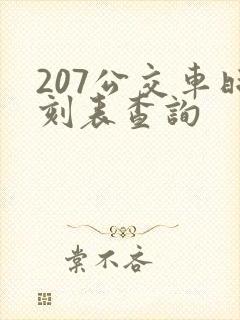 207公交車時
刻表查詢
棠不吝